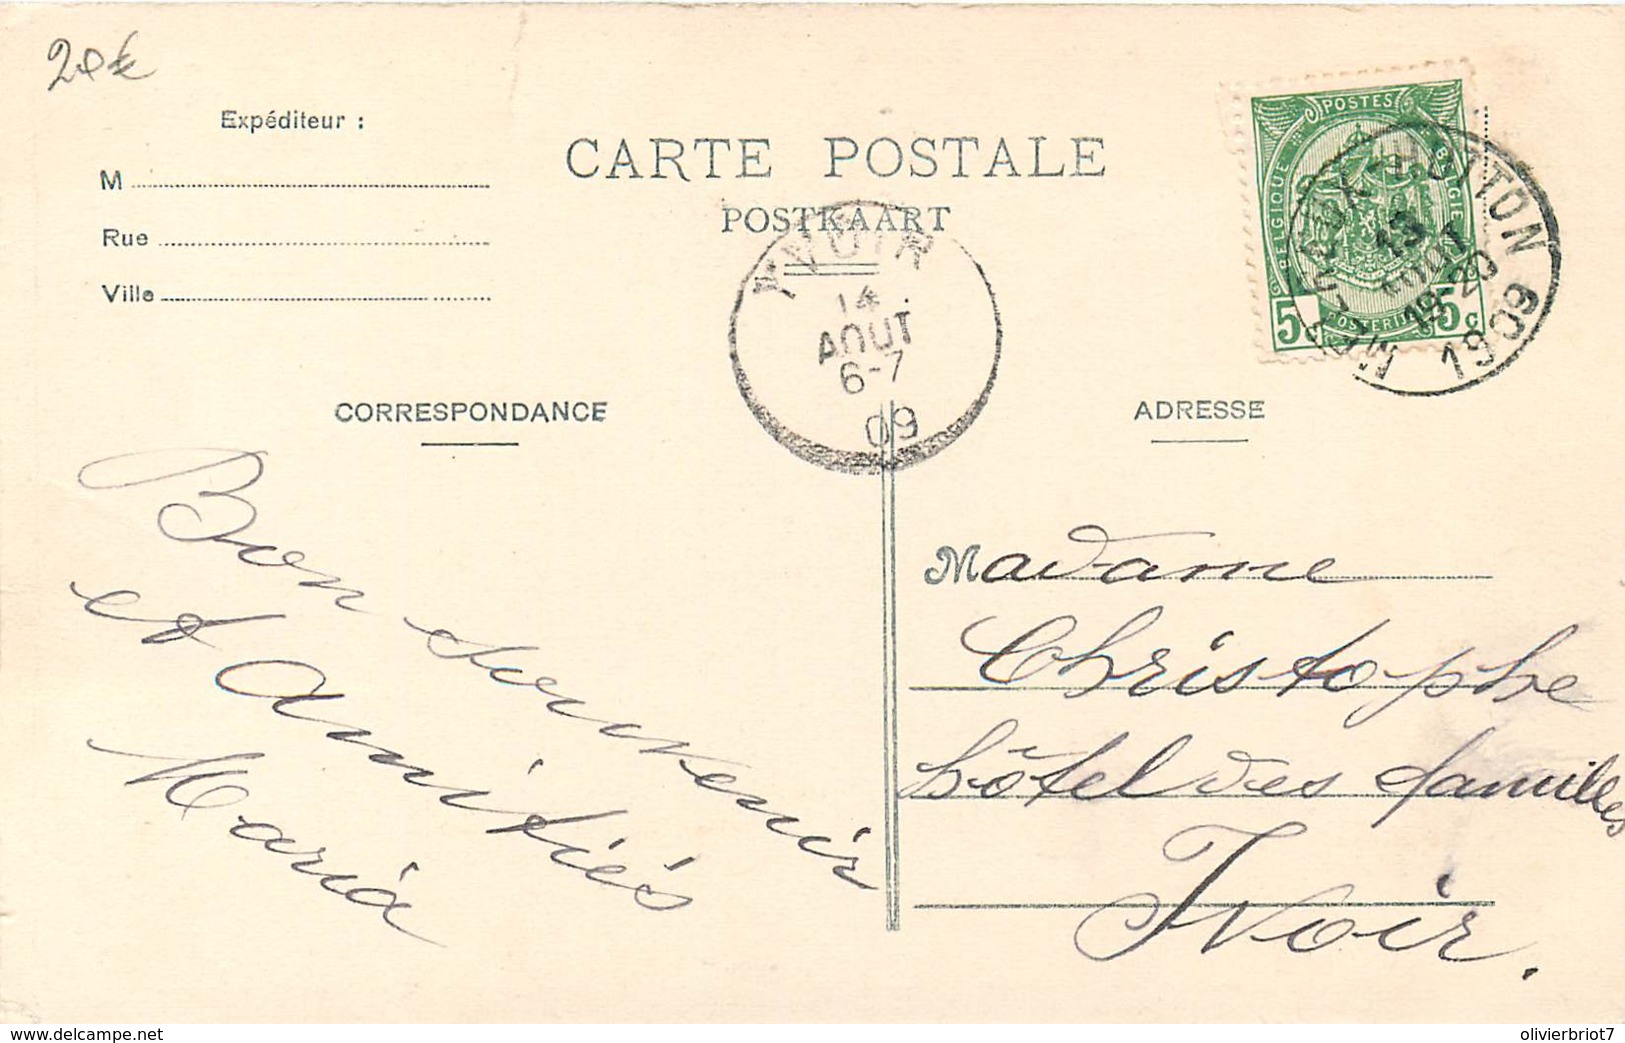 20€
Expéditeur :
M
Rue
Ville
CARTE POSTALE
POSTKAART
POSTES
BELGIQUE
BELGIE
5c
5c
MELREUX-HOTTON
13
AOUT
19-20
1909
YVOIR
14
AOUT
6-7
09
CORRESPONDANCE
Bon souvenir
et Amitiés
Maria
ADRESSE
Madame
Christophe
hôtel des familles
Ivoir.
delcampe.net
olivierbriot7